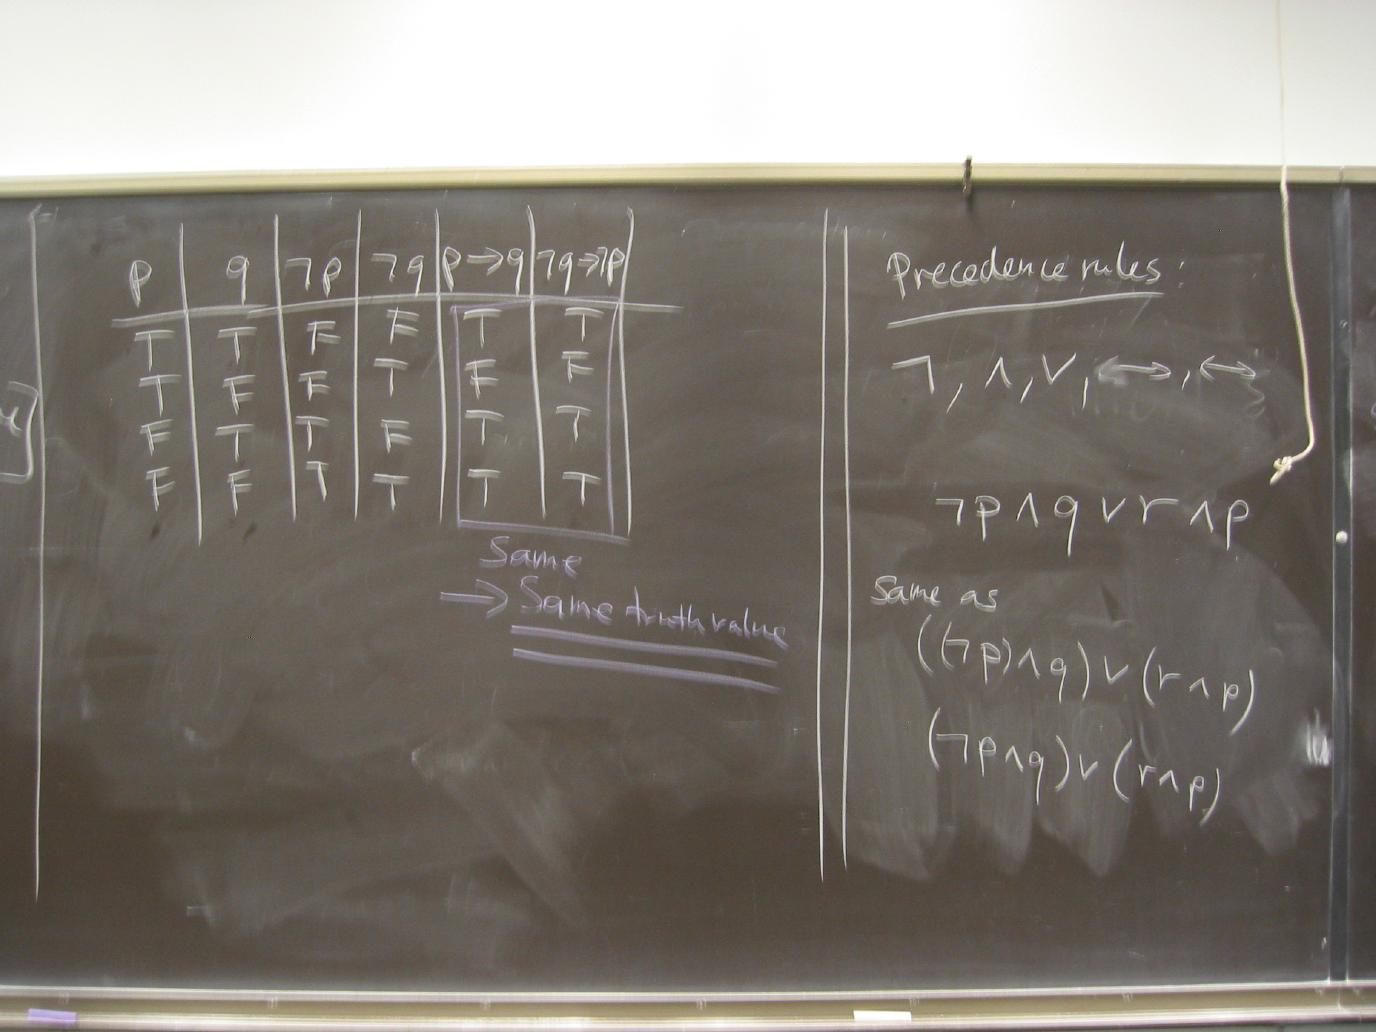 p q ¬p ¬q p→q ¬q→¬p
T T F F T T
T F F T F F
F T T F T T
F F T T T T
Same
→ Same truth value
Precedence rules:
¬, ∧, ∨, ↔, ↔
¬p∧q∨r∧p
Same as
((¬p)∧q)∨(r∧p)
(¬p∧q)∨(r∧p)